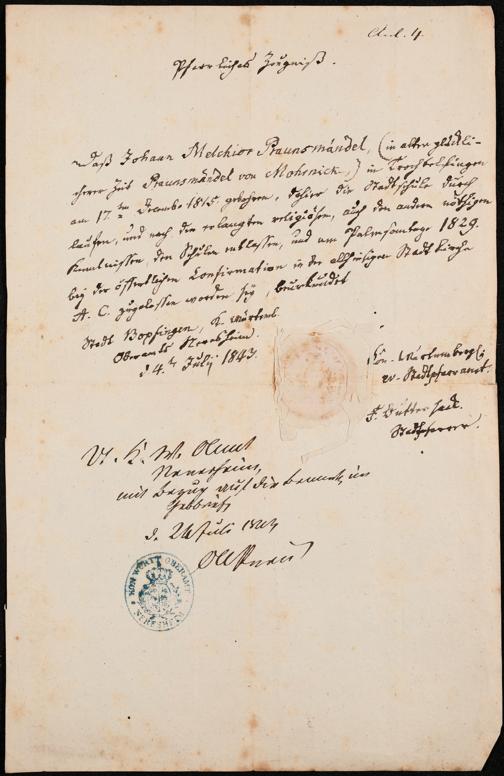 Aul. 4.
Pfarrliches Zeugniß.
Daß Johann Melchior Praunsmändel, (in alten
Praunsmändel von Mohrnick,) in Trochtelfingen
am 17. ten Decembr 1815 geboren, dahier die Stadtschule durch
laufen, und nach den erlangten religiösen, auch den andern nöthigen
Kenntnissen, den Schulen entlassen, und am Palmsontage 1829.
bey der öffentlichen Confirmation in der allhiesigen Stadtkirche
H. C. zugelassen worden sey, beurkundet
Stadt Bopfingen, K. Würtemb.
Oberamts Neresheim.
d 4. ten July 1843.
Kön. Würtemberg.
ev. Stadtpfarramt.
Stadtpfarrer.
Vt. K. W. OAmt
Neresheim,
mit Bezug auf die
d. Juli
KÖN. WÜRTT. OBERAMT
NERESHEIM